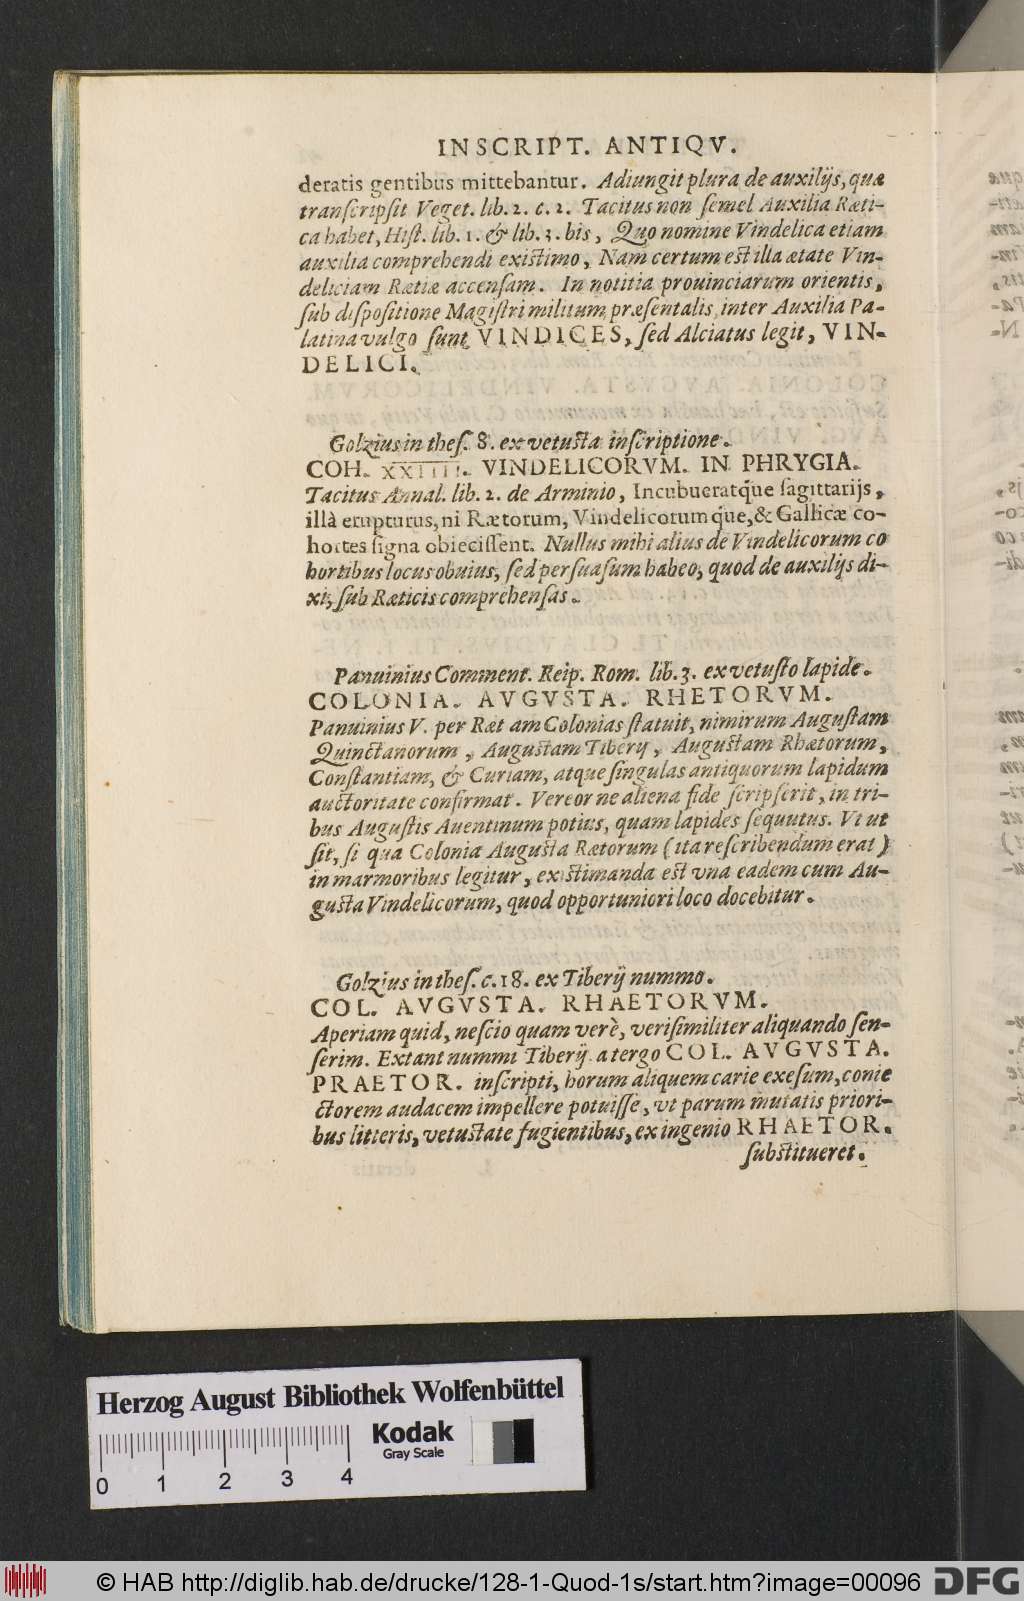 INSCRIPT. ANTIQV.
deratis gentibus mittebantur. Adiungit plura de auxilijs, quæ
tranſcripſit Veget. lib. 2. c. 2. Tacitus non ſemel Auxilia Ræti-
ca habet, Hiſt. lib. 1. & lib. 3. bis, Quo nomine Vindelica etiam
auxilia comprehendi existimo, Nam certum est illa ætate Vin-
deliciam Rætiæ accenſam. In notitia prouinciarum orientis,
ſub diſpoſitione Magiſtri militum præſentalis inter Auxilia Pa-
latina vulgo ſunt VINDICES, ſed Alciatus legit, VIN-
DELICI.
Golzius in theſ. 8. ex vetusta inſcriptione.
COH. XXIIII. VINDELICORVM. IN PHRYGIA.
Tacitus Annal. lib. 2. de Arminio, Incubueratq́ue ſagittarijs,
illà erupturus, ni Rætorum, Vindelicorumq́ue, & Gallicæ co-
hortes ſigna obieciſſent. Nullus mihi alius de Vindelicorum co
hortibus locus obuius, ſed perſuaſum habeo, quod de auxilijs di-
xi, ſub Ræticis comprehenſas.
Panuinius Comment. Reip. Rom. lib. 3. ex vetuſto lapide.
COLONIA. AVGVSTA. RHETORVM.
Panuinius V. per Ræt am Colonias ſtatuit, nimirum Auguſtam
Quinctanorum, Augustam Tiberij, Augustam Rhætorum,
Conſtantiam, & Curiam, atque ſingulas antiquorum lapidum
auctoritate confirmat. Vereor ne aliena fide ſcripſerit, in tri-
bus Auguſtis Auentinum potius, quam lapides ſequutus. Vt ut
ſit, ſi qua Colonia Augusta Rætorum (ita reſcribendum erat)
in marmoribus legitur, existimanda est vna eadem cum Au-
gusta Vindelicorum, quod opportuniori loco docebitur.
Golzius in theſ. c. 18. ex Tiberij nummo.
COL. AVGVSTA. RHAETORVM.
Aperiam quid, neſcio quam verè, veriſimiliter aliquando ſen-
ſerim. Extant nummi Tiberij. a tergo COL. AVGVSTA.
PRAETOR. inſcripti, horum aliquem carie exeſum, conie
ctorem audacem impellere potuiſſe, vt parum mutatis priori-
bus litteris, vetustate fugientibus, ex ingenio RHAETOR.
ſubstitueret.
Herzog August Bibliothek Wolfenbüttel
Kodak
Gray Scale
0 1 2 3 4
© HAB http://diglib.hab.de/drucke/128-1-Quod-1s/start.htm?image=00096
DFG